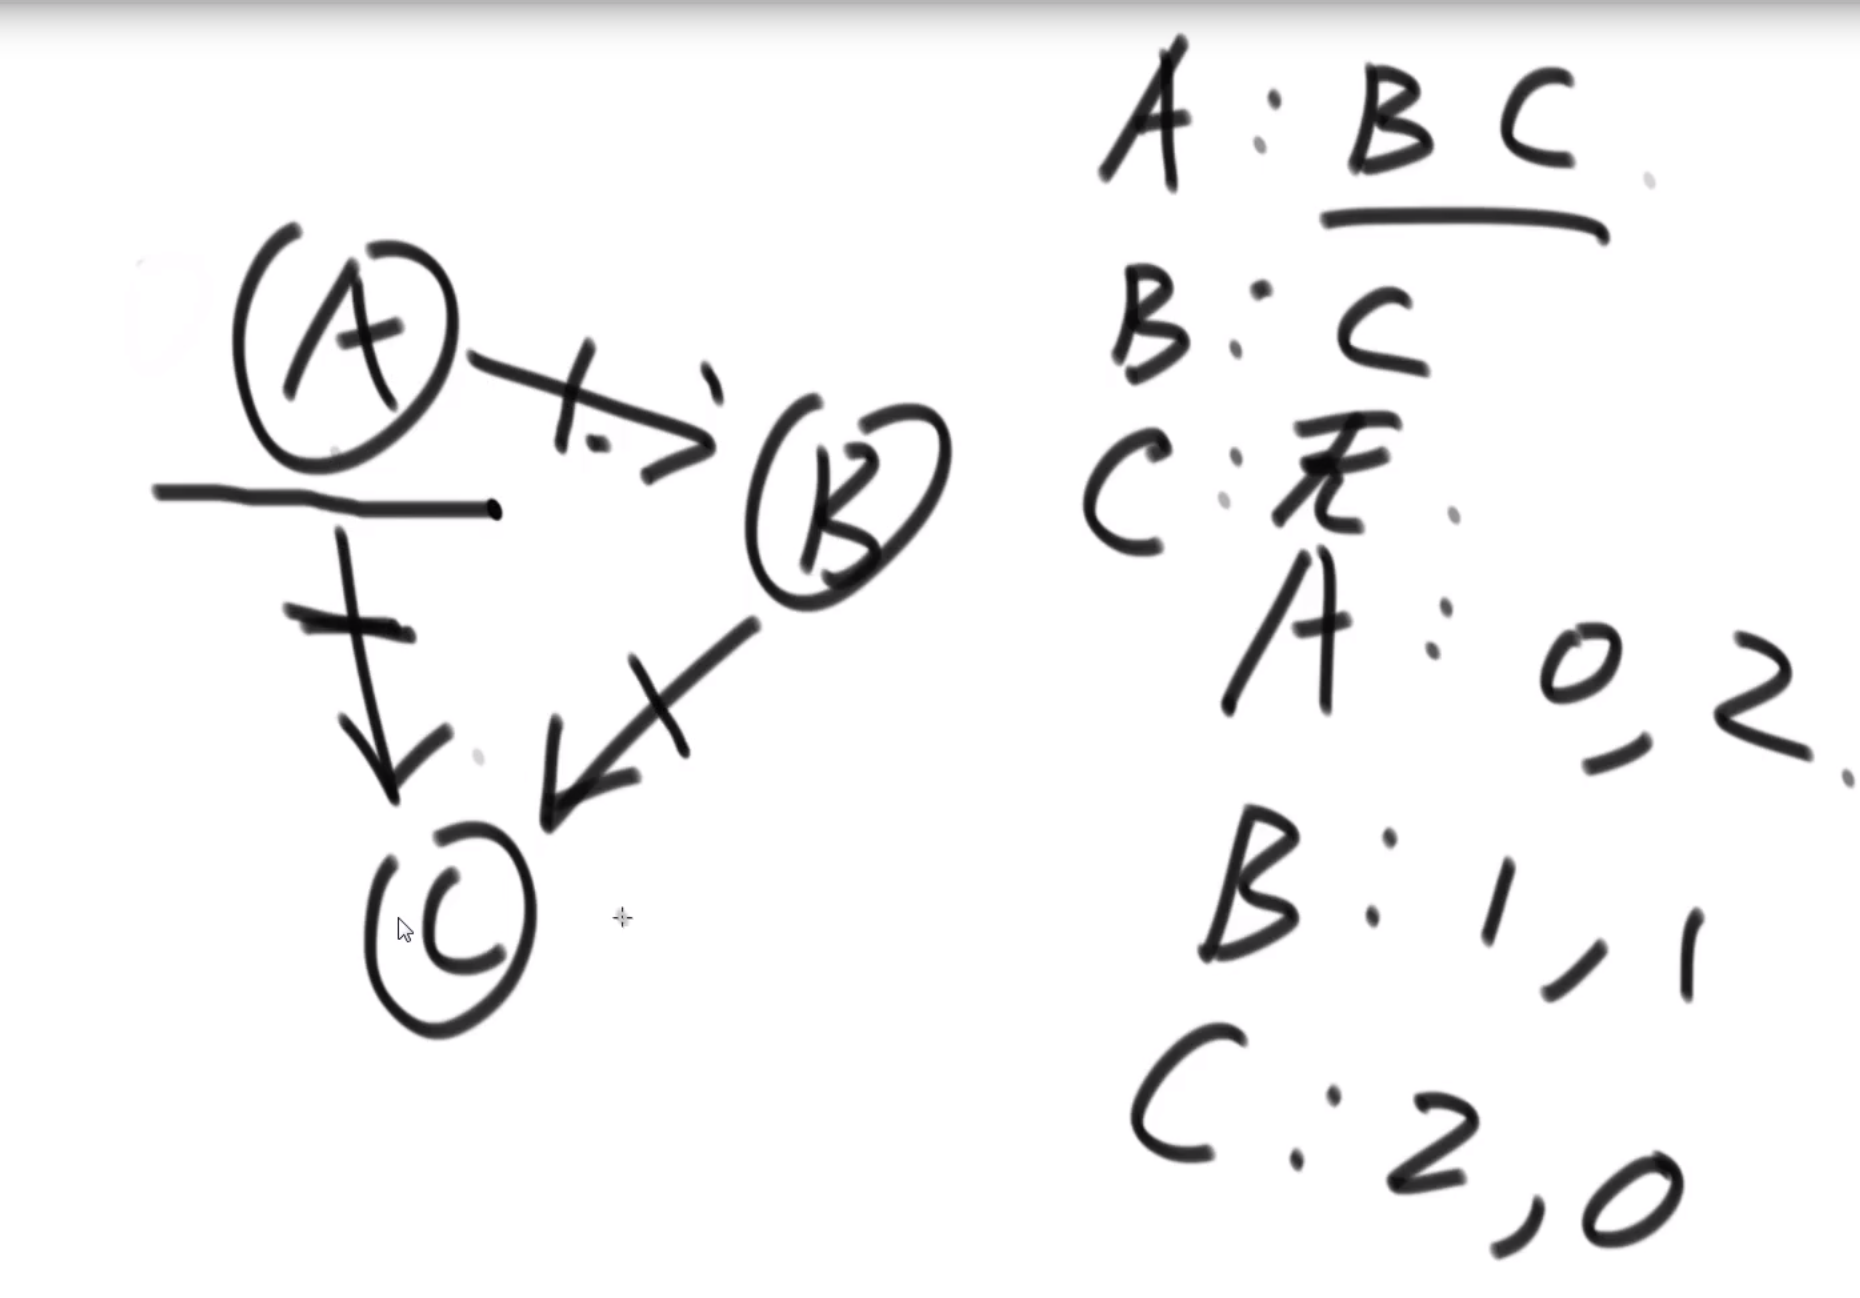 A
B
C
A: B C
B: C
C: 无
A: 0, 2
B: 1, 1
C: 2, 0